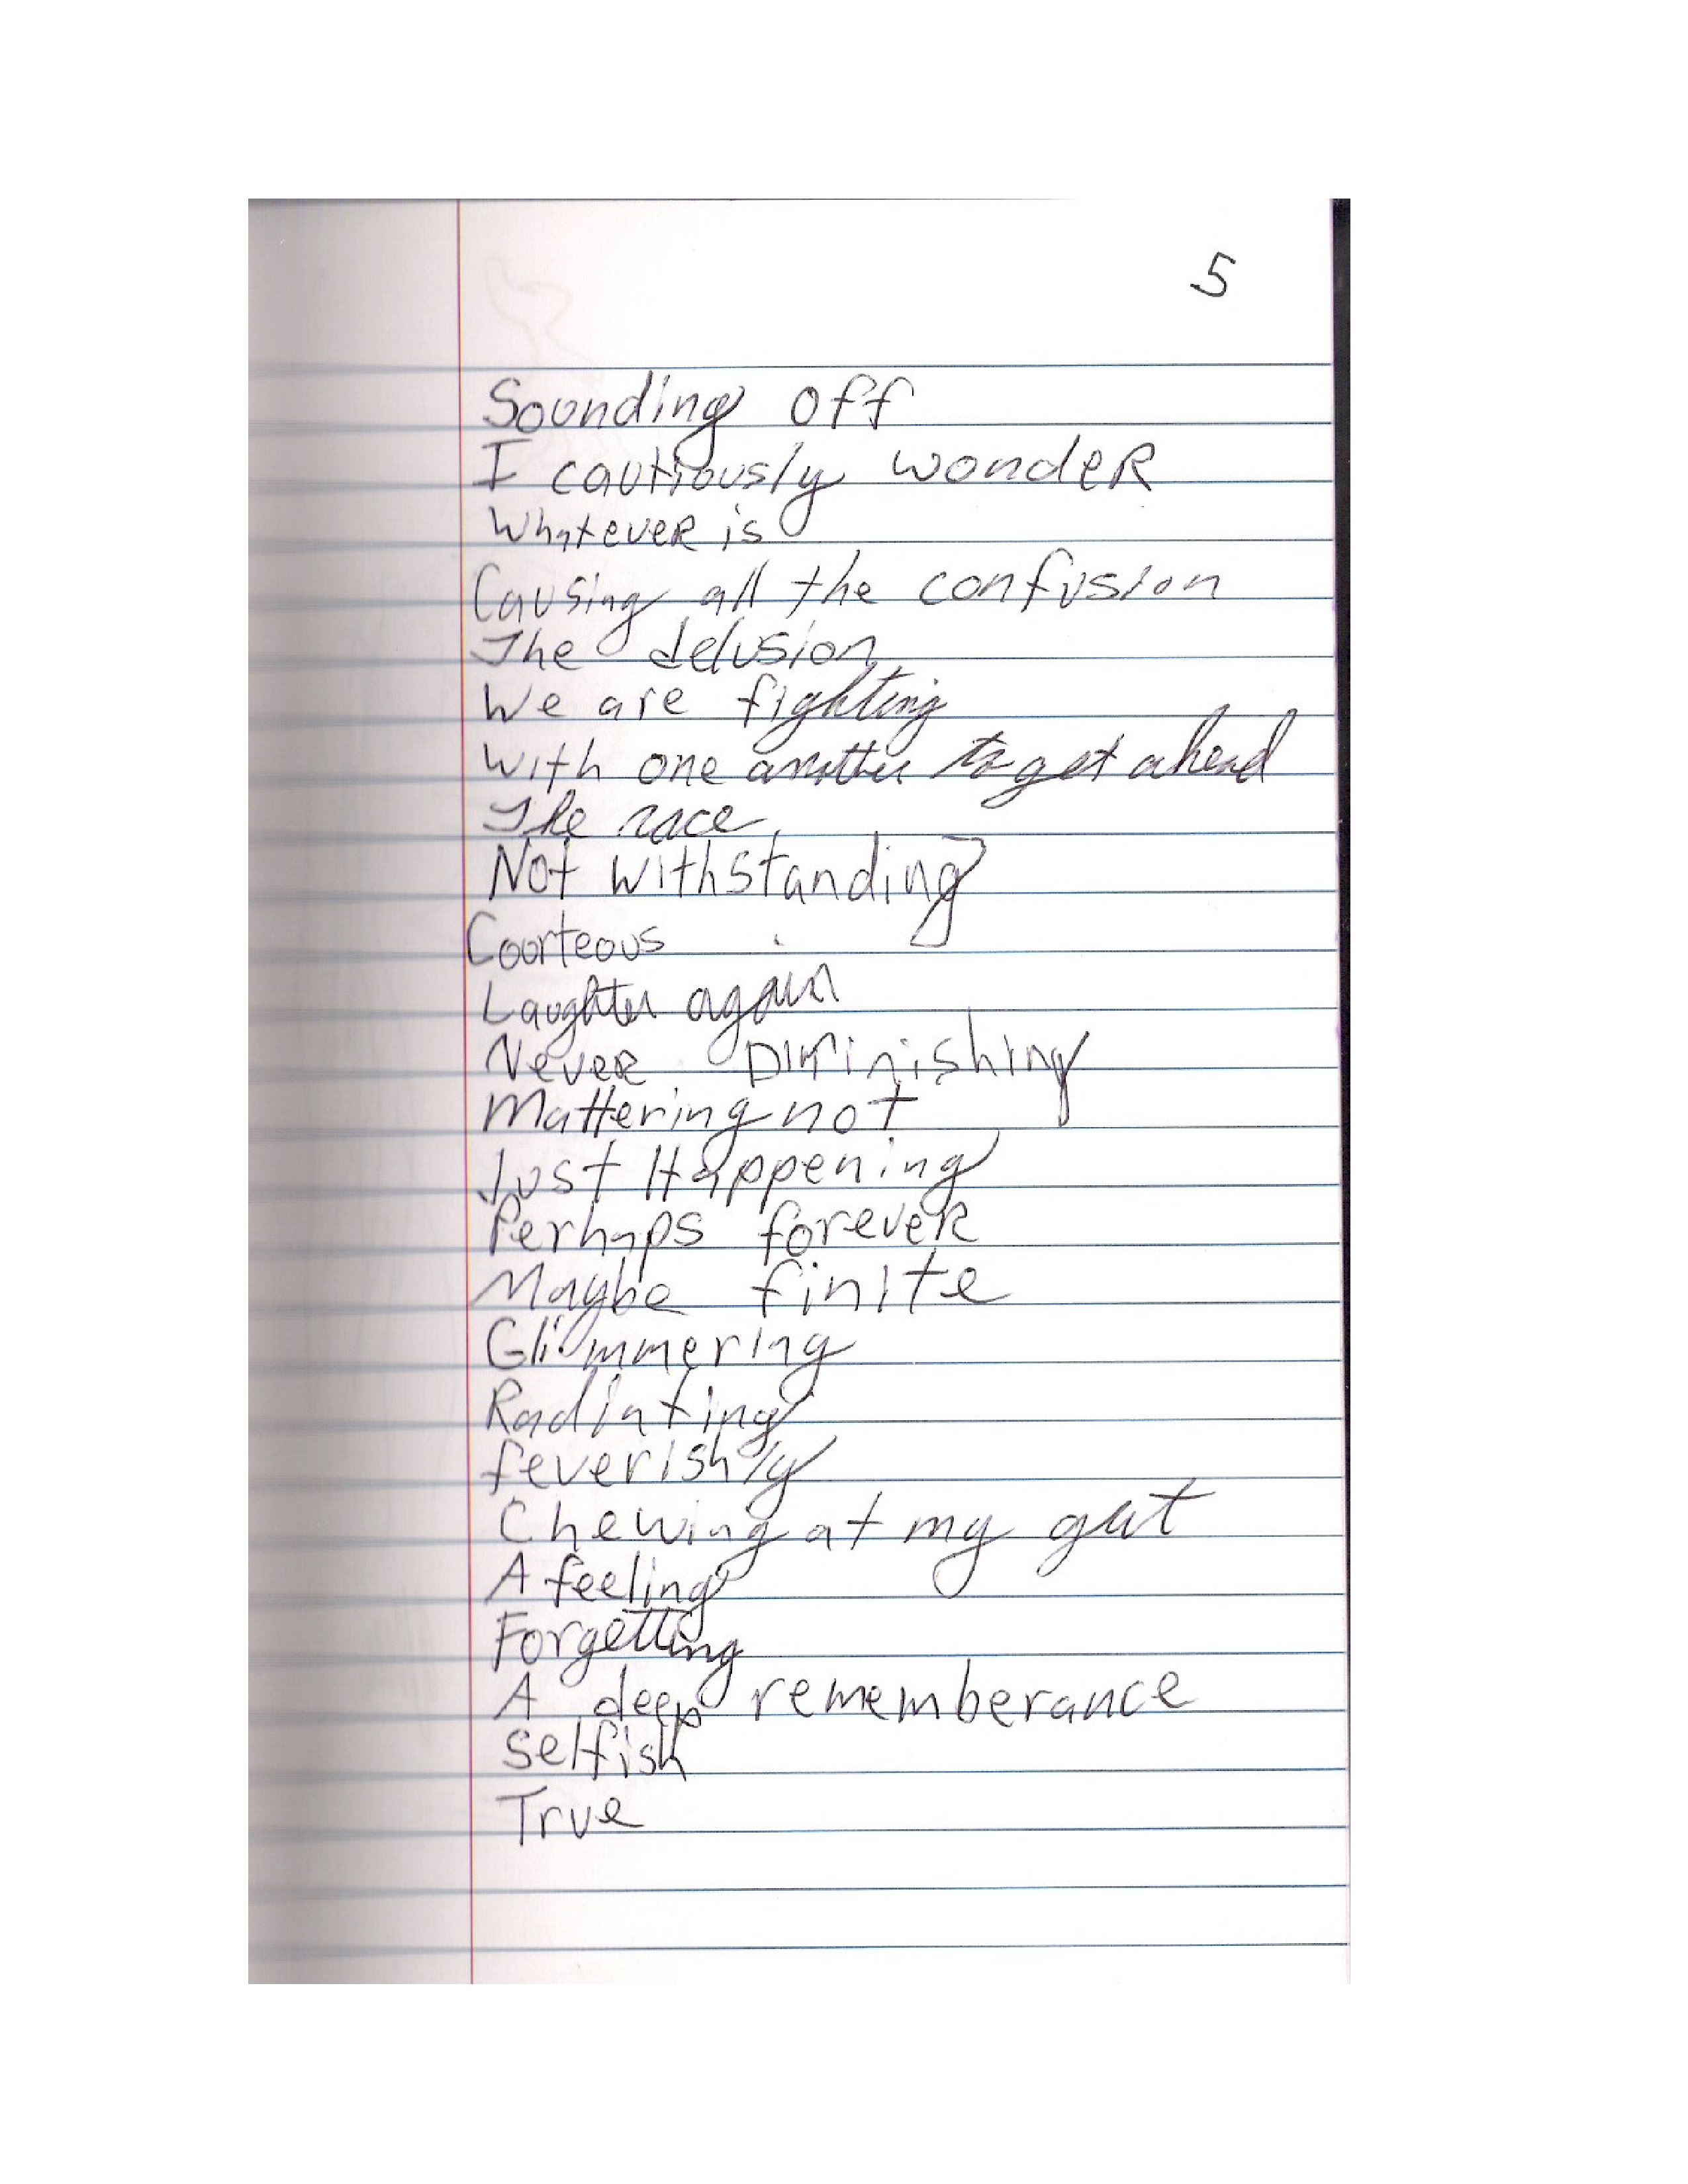 5
Sounding off
I cautiously wonder
Whatever is
Causing all the confusion
The delusion
We are fighting
With one another to get ahead
The race
Not withstanding
Courteous
Laughter again
Never Diminishing
Mattering not
Just Happening
Perhaps forever
Maybe finite
Glimmering
Radiating
feverishly
Chewing at my gut
A feeling
Forgetting
A deep rememberance
Selfish
True